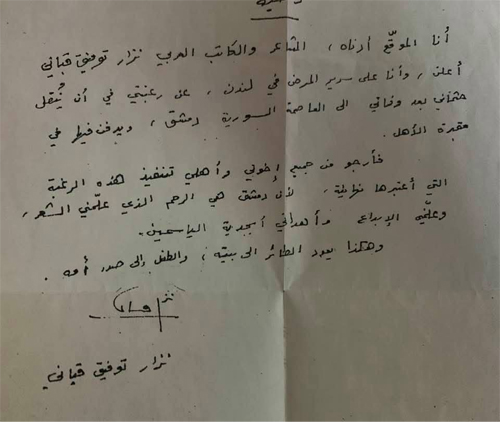 أنا الموقّع أدناه، الشاعر والكاتب العربي نزار توفيق قباني
أعلن، وأنا على سرير المرض في لندن، عن رغبتي في أن يُنقل
جثماني بعد وفاتي الى العاصمة السورية دمشق، ويدفن فيها في
مقبرة الأهل.
فأرجو من جميع إخوتي وأهلي تنفيذ هذه الرغبة
التي أعتبرها نهائية، لأن دمشق هي الرحم الذي علّمني الشعر،
وعلّمني الإبداع وأهداني أبجدية الياسمين.
وهكذا يعود الطائر الى بيته، والطفل إلى صدر أمه.
نزار قباني
نزار توفيق قباني